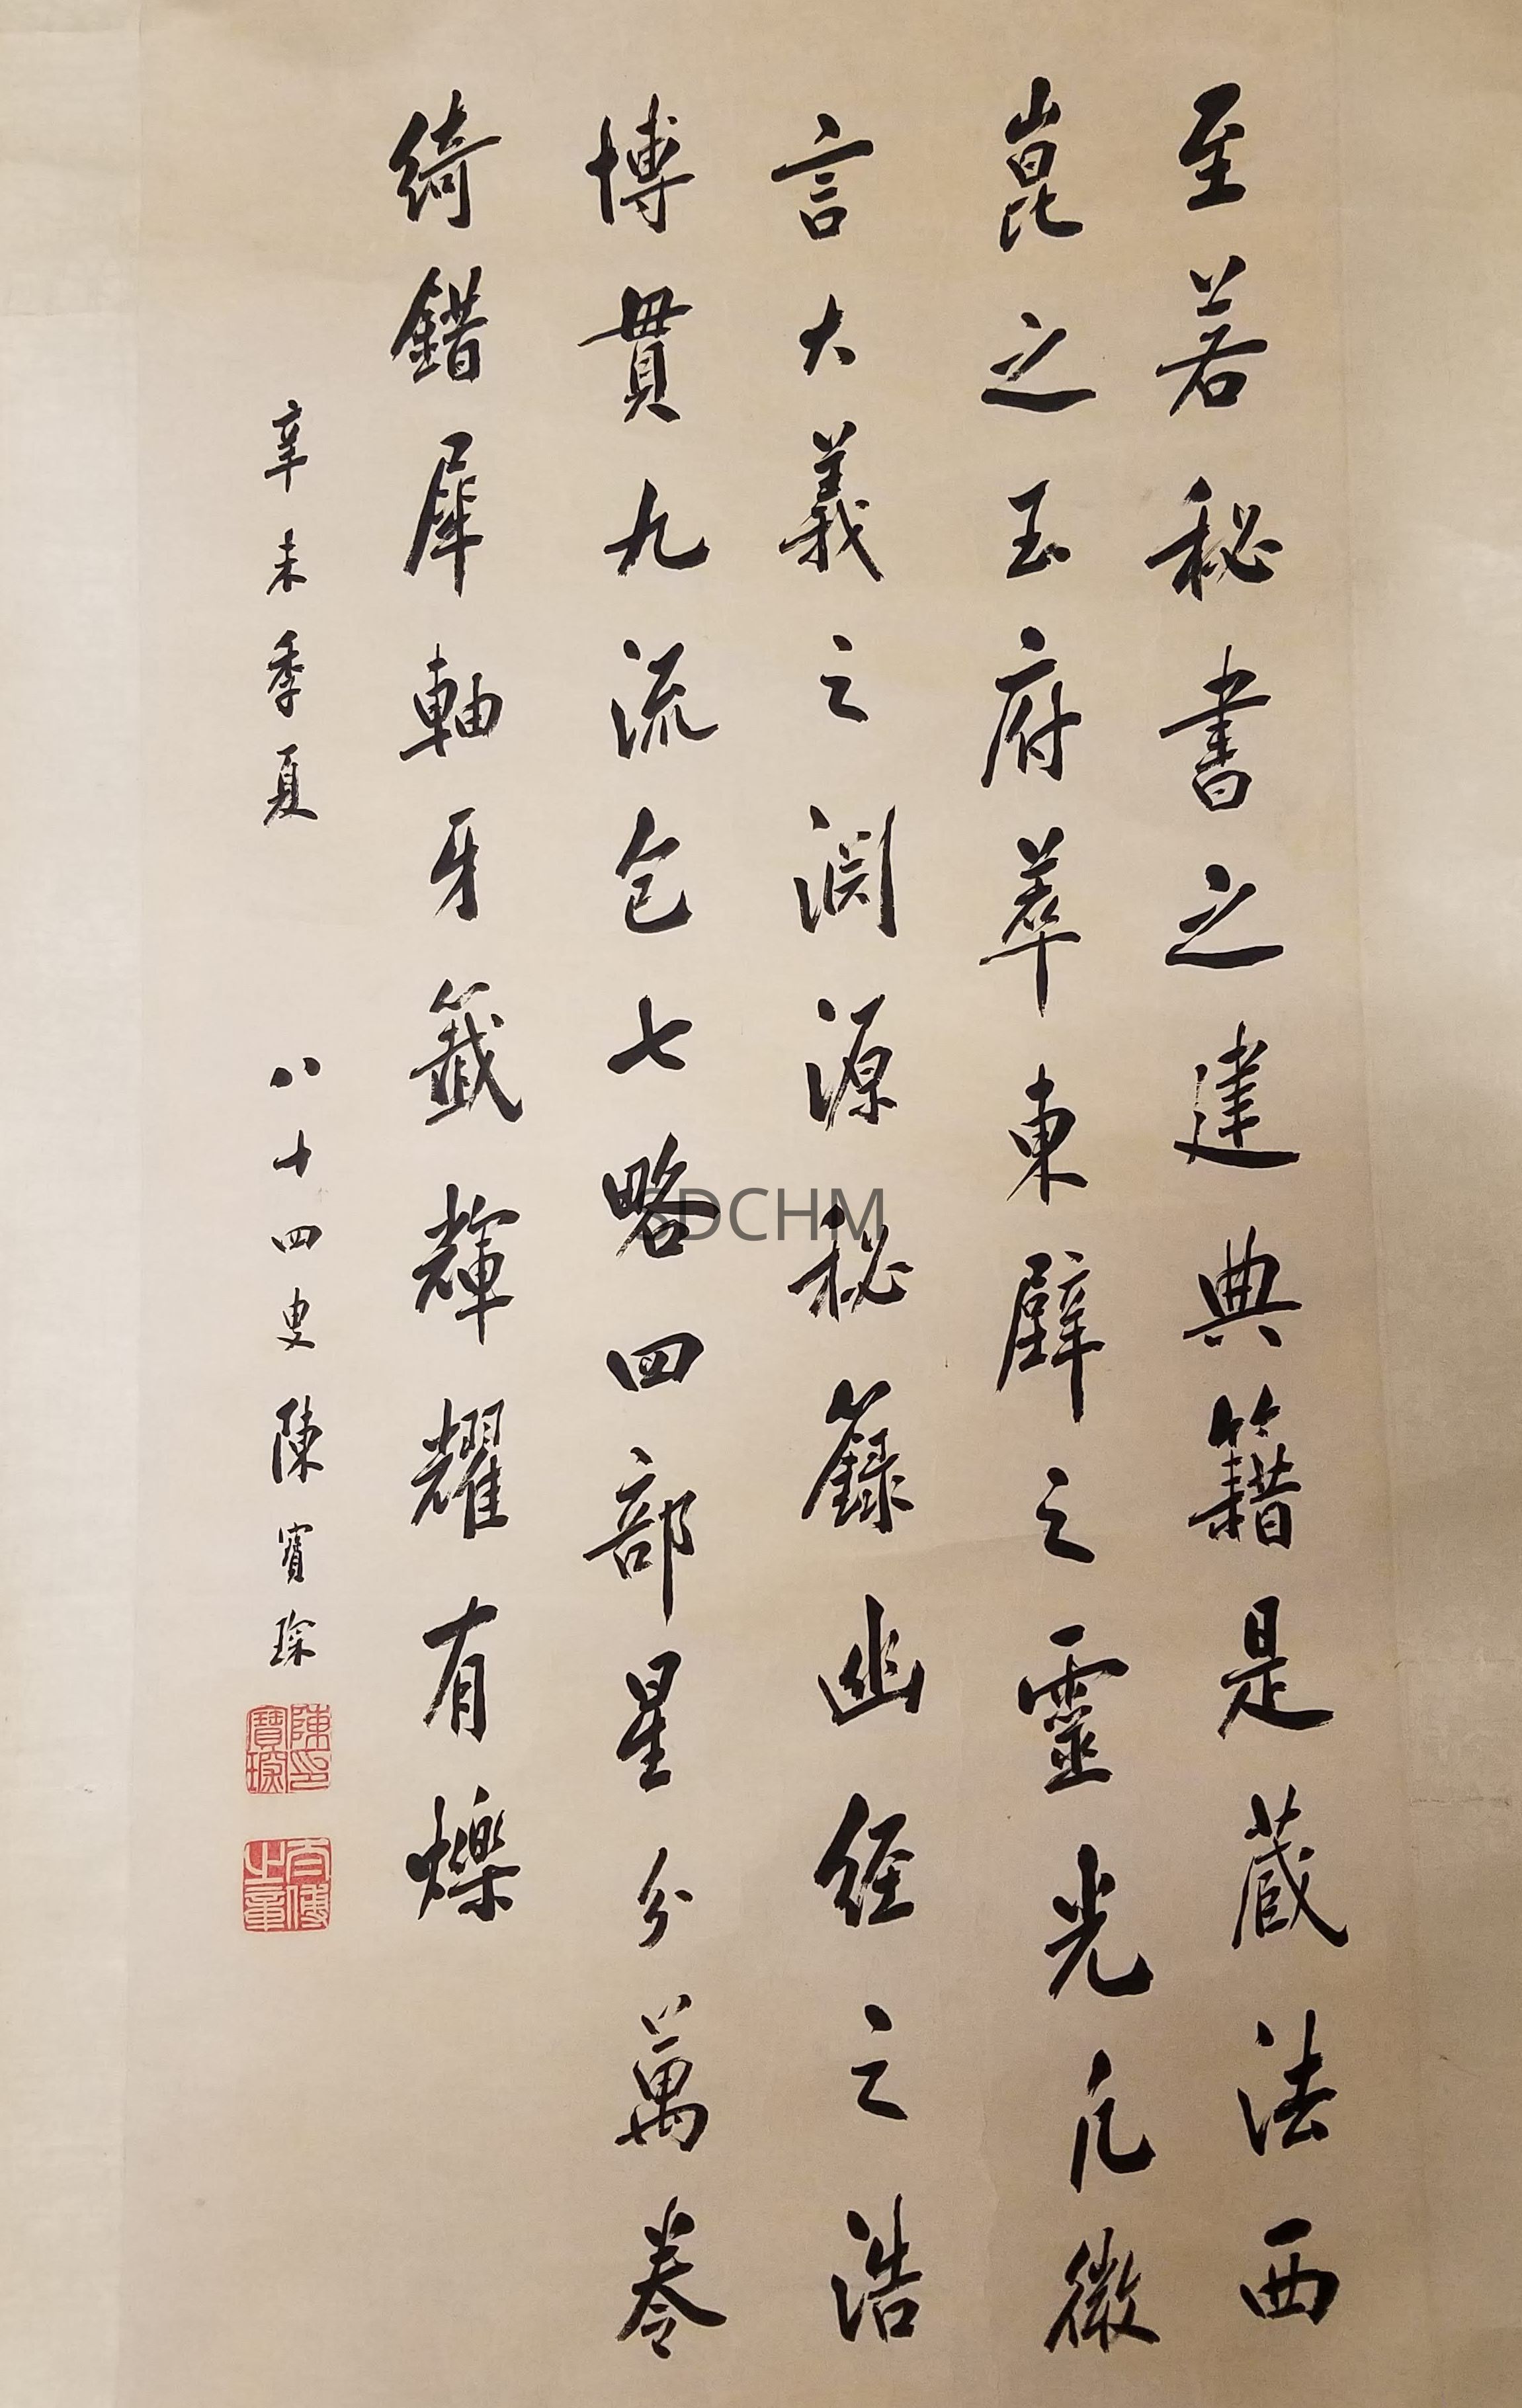 至若秘書之建典籍是藏法西
崑之玉府萃東壁之靈光凡微
言大義之淵源秘籙幽經之浩
博貫九流包七略四部星分萬卷
綺錯犀軸牙籤輝耀有爍
辛未季夏
八十四叟陳寶琛
陳寶琛印
太傅之章
SDCHM